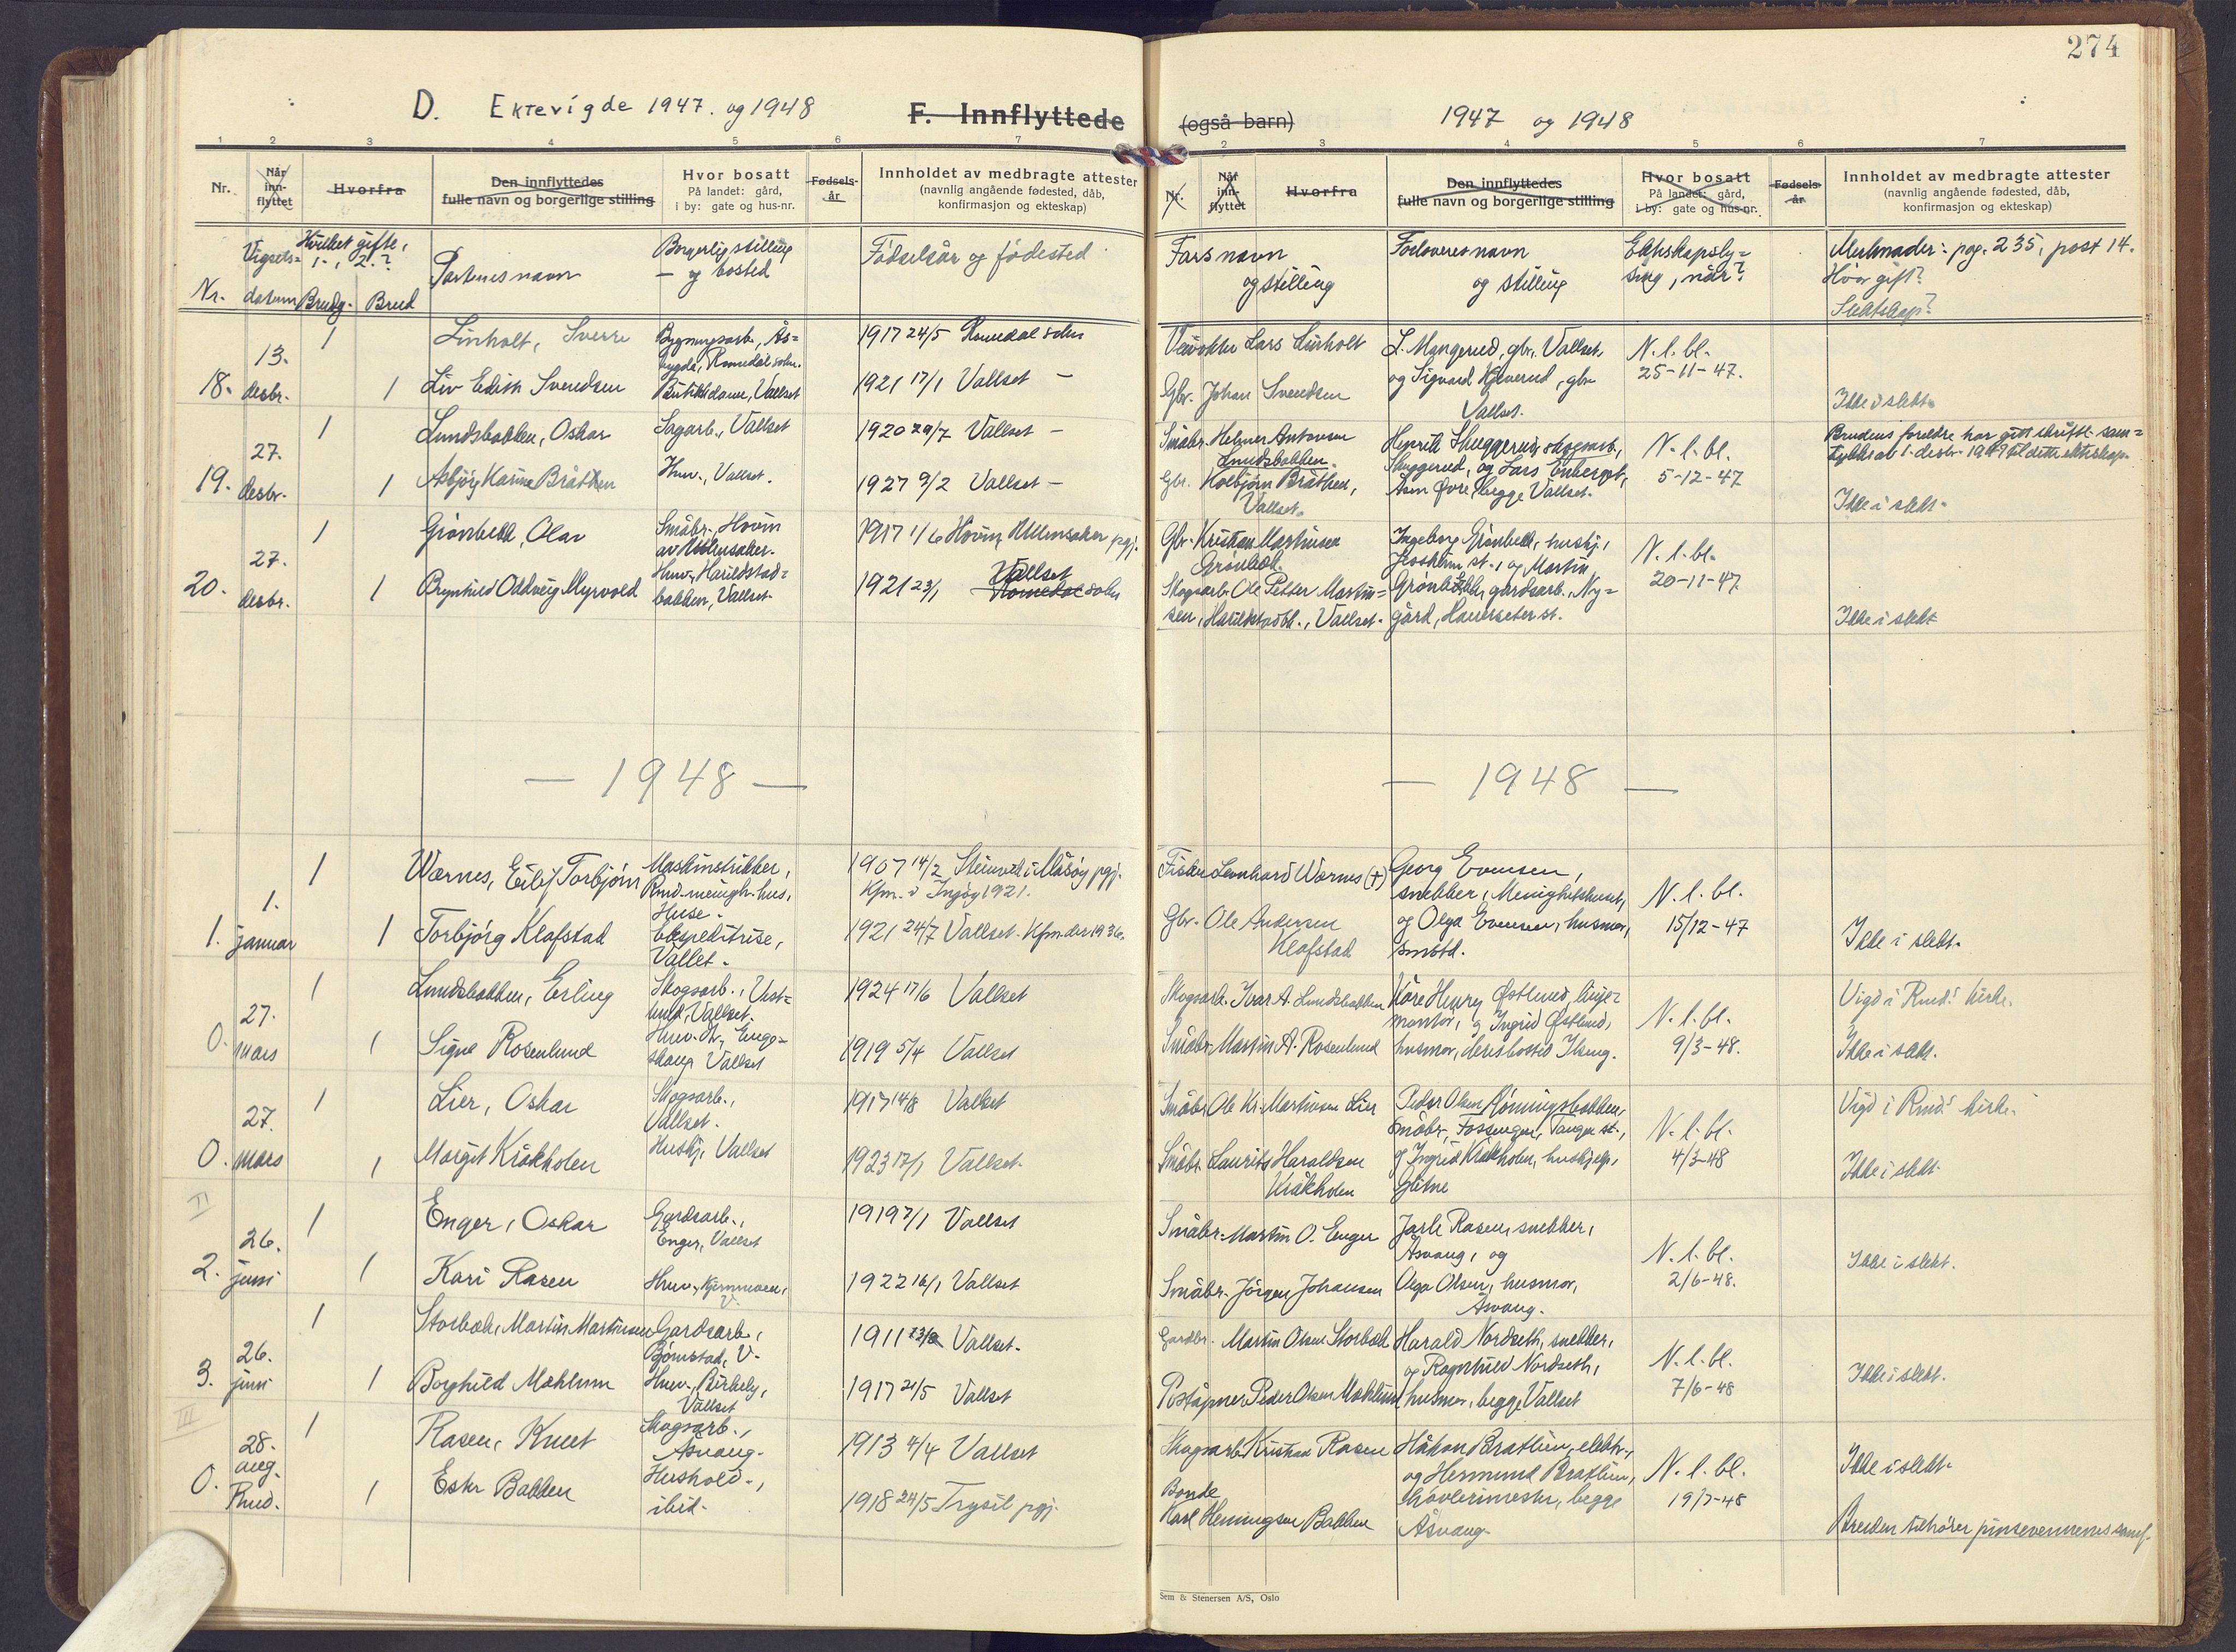 274
D. Ektevigde 1947. og 1948
F. Innflyttede
(også barn)
1947 og 1948
1 2 3 4 5 6 7
2 3 4 5 6 7
Nr.
Når inn-flyttet
Hvorfra
Den innflyttedes
fulle navn og borgerlige stilling
Hvor bosatt
På landet: gård,
i by: gate og hus-nr.
Fødsels-
år
Innholdet av medbragte attester
(navnlig angående fødested, dåb,
konfirmasjon og ekteskap)
Nr.
Når inn-flyttet
Hvorfra
Den innflyttedes
fulle navn og borgerlige stilling
Hvor bosatt
På landet: gård,
i by: gate og hus-nr.
Fødsels-
år
Innholdet av medbragte attester
(navnlig angående fødested, dåb,
konfirmasjon og ekteskap)
Nr.
Vigsels=
datum
Hvilket gifte,
1., 2.?
Brudg. Brud
Partenes navn
Borgerlig stilling
— og bosted
Fødselsår og fødested
Fars navn
og stilling
Forloveres navn
og stilling
Merknader: pag. 235, post 14.
Hvor gift?
Slektskap?
18. 13. desbr.
1 Linholt, Sverre
Bygningsarb., Ås=
bygda, Romedal sokn.
1917 24/5 Romedal sokn
Lars Linholt
L. Mangerud, gbr. Vallset,
og Sigvard Kjeverud, gbr.
Vallset.
N.l.bl.
25-11-47.
1 Liv Edith Svendsen
Butikkdame, Vallset
1921 17/1 Vallset —
Gbr. Johan Svendsen
Ikke i slekt.
19. 27. desbr.
1 Lundsbakken, Oskar
Sagarb., Vallset
1920 29/7 Vallset —
Småbr. Helmer Antonsen
Lundsbakken.
Henrik Skuggerud, skogsarb.,
Skuggerud, og Lars Enberget,
Åsen Øvre, begge Vallset.
N.l.bl.
5-12-47
Brudens foreldre har gitt skriftl. sam=
tykke av 1. desbr. 1947 til dette ekteskap.
1 Asbjørg Karine Bråthen
Husv., Vallset.
1927 9/2 Vallset —
Gbr. Kolbjørn Bråthen,
Vallset.
Ikke i slekt.
20. 27. desbr.
1 Grønbekk, Olav
Småbr., Hovin
av Ullensaker.
1917 1/6 Hovin, Ullensaker pgj.
Gbr. Kristian Martinsen
Grønbekk.
Ingeborg Grønbekk, hushj.,
Jessheim st., og Martin
Grønbekk, gårdsarb., Ny=
gård, Hauerseter st.
N.l.bl.
20-11-47.
1 Brynhild Oddveig Myrvold
Husv., Harildstad=
bakken, Vallset.
1921 23/1 Vallset Romedal sokn
Skogsarb. Ole Petter Martin=
sen, Harildstadbk., Vallset.
Ikke i slekt
— 1948 —
— 1948 —
1. 1. januar
1 Wærnes, Eilif Torbjørn
Maskinstrikker,
Rmd. menigh. hus,
Huse.
1907 14/2 Steinvik i Måsøy pgj.
Kfm. i Ingøy 1921.
Fisker Leonhard Wærnes (†)
Georg Evensen,
snekker, Menighetshuset,
og Olga Evensen, husmor,
smstd.
N.l.bl.
15/12-47
1 Torbjørg Klafstad
Ekspeditrise,
Vallet.
1921 24/7 Vallset. Kfm. der 1936.
Gbr. Ole Andersen
Klafstad
Ikke i slekt.
0. 27. mars
1 Lundsbakken, Erling
Skogsarb., Vest=
Vallset.
1924 17/6 Vallset
Skogsarb. Ivar A. Lundsbakken
Kåre Henry Østlund, linje=
montør, og Ingrid Østlund,
husmor, deres bosted Ilseng.
N.l.bl.
9/3-48.
Vigd i Rmd.s kirke.
1 Signe Rosenlund
Vallset
1919 5/4 Vallset
Småbr. Martin A. Rosenlund
Ikke i slekt.
0. 27. mars
1 Lier, Oskar
Skogsarb.,
Vallset.
1917 14/8 Vallset
Småbr. Ole Kr. Martinsen Lier
Peder Olsen Hønningsbakken,
småbr., Fossenget, Tangen st.,
og Ingrid Kråkholen, hushjelp,
N.l.bl.
4/3-48
Vigd i Rmd.s kirke.
1 Margit Kråkholen
Hushj., Vallset
1923 17/1 Vallset.
Småbr. Laurits Haraldsen
Kråkholen
Ikke i slekt.
II
2. 26. juni
1 Enger, Oskar
Gardsarb.,
Enger, Vallset
1919 7/1 Vallset
Småbr. Martin O. Enger
Jarle Rasen, snekker,
Åsvang, og
Olga Olsen, husmor,
Åsvang.
N.l.bl.
2/6-48.
1 Kari Rasen
1922 16/1 Vallset
Småbr. Jørgen Johansen
Ikke i slekt.
3. 26. juni
1 Storbæk, Martin Martinsen
Gardsarb.,
Bjørnstad, V.
1911 Vallset.
Gardbr. Martin Olsen Storbæk
Harald Nordseth, snekker,
og Ragnhild Nordseth,
husmor, begge Vallset
N.l.bl.
7/6-48
1 Borghild Mæhlum
Husv., Birkely,
Vallset
1917 21/5 Vallset
Poståpner Peder Olsen Mæhlum
Ikke i slekt.
III
0. 28. aug. Rmd.
1 Rasen, Knut
Skogsarb.,
Åsvang.
1913 4/4 Vallset
Skogsarb. Kristian Rasen
Håkon Bratlien, elektr.,
og Hermund Bratlien,
høvlerimester, begge
Åsvang.
N.l.bl.
19/7-48
Ikke i slekt.
1 Ester Bakken
Hushold.,
ibid.
1918 24/5 Trysil pgj.
Bonde
Karl Hemingsen Bakken
Bruden tilhører pinsevennenes samf.
Sem & Stenersen A/S, Oslo